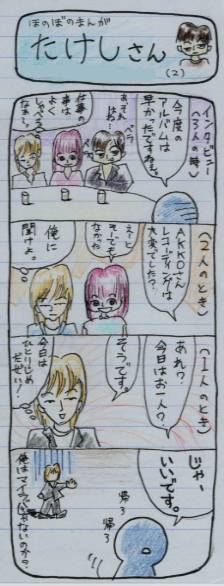 ほのぼのまんが
たけしさん
(2)
インタビュー
(3人の時)
今度の
アルバムは
早かったですねぇ。
ペラ
仕事の
事は
よく
しゃべる
なぁ…
(2人のとき)
AKKOさん
レコーディングは
大変でした?
えーと
そーでも
なかった
俺に
聞けよ。
(1人のとき)
あれ?
今日はお一人?
そうです。
今日は
ひとりじめ
だぜい!
じゃー
いいです。
帰ろ
帰ろ
俺はマイラバじゃないのか?